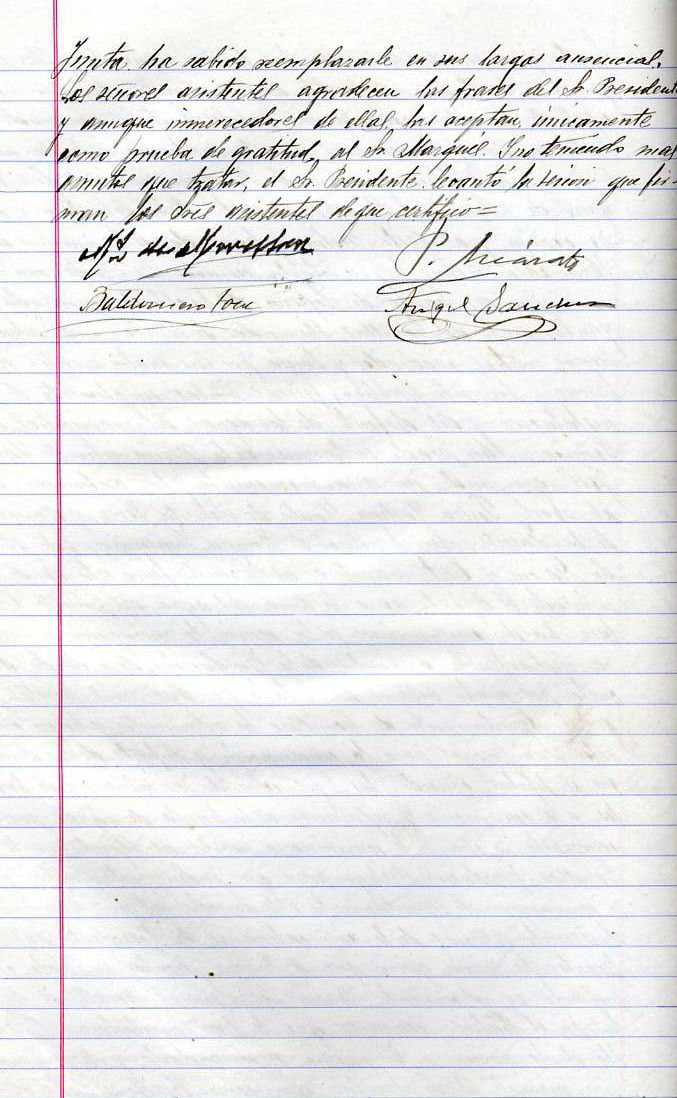 Junta ha sabido reemplazarle en sus largas ausencias.
Los señores asistentes agradecen las frases del Sr. President
y aunque inmerecedores de ellas, las aceptan, únicamente
como prueba de gratitud, al Sr. Marqués. Y no teniendo mas
asuntos que tratar, el Sr. Presidente, levantó la sesion que fir-
man los Sres asistentes de que certifico=
de
P.
Baldomero
Angel Sanchez